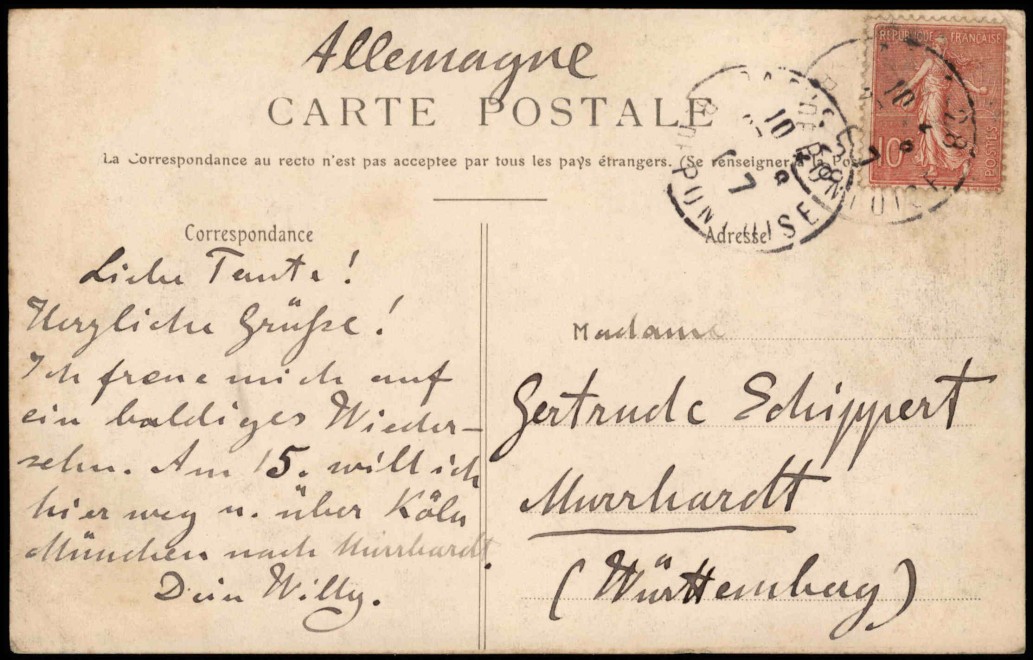 Allemagne
CARTE POSTALE
La Correspondance au recto n'est pas acceptee par tous les pays étrangers. (Se renseigner à la Pos
REPUBLIQUE FRANÇAISE
10c
POSTES
Correspondance
Liebe Tante!
Herzliche Grüße!
Ich freue mich auf
ein baldiges Wieder-
sehn. Am 15. will ich
hier weg u. über Köln
München nach Murrhardt.
Dein Willy.
Adresse
Madame
Gertrude Schippert
Murrhardt
(Württemberg)